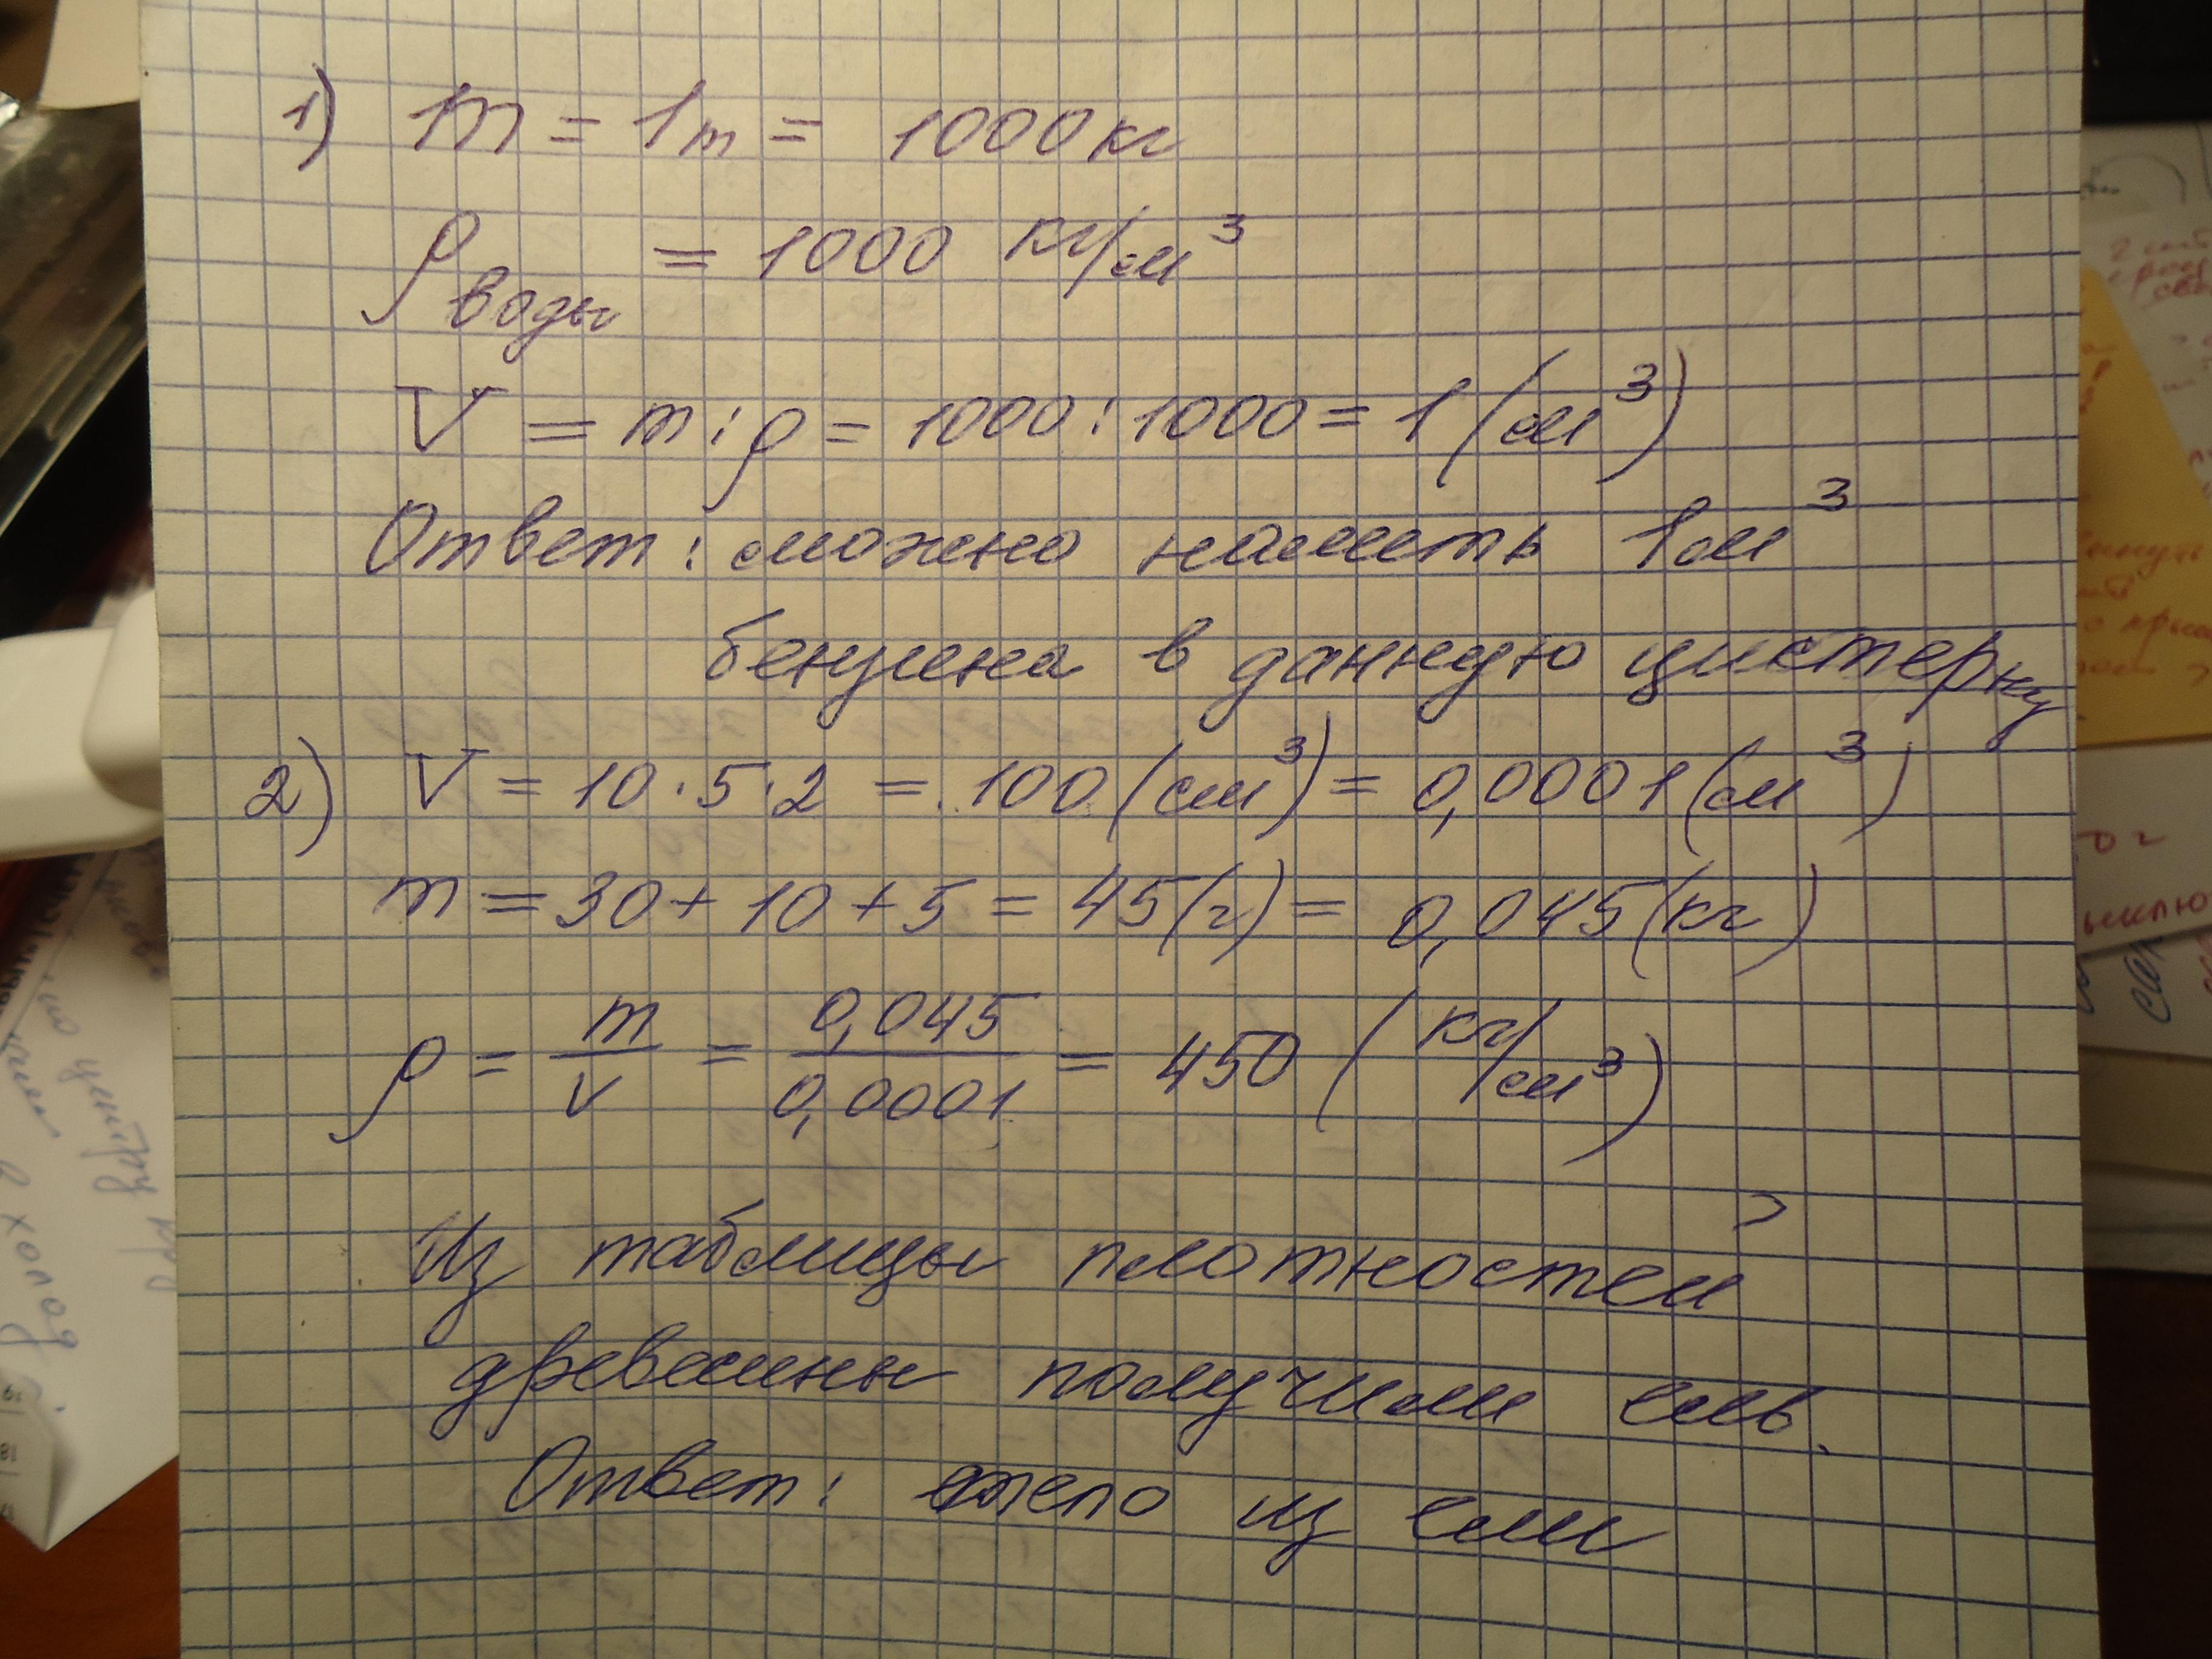 1) m = 1т = 1000 кг
ρ воды = 1000 кг/м³
V = m : ρ = 1000 : 1000 = 1 (м³)
Ответ: можно налить 1 м³
бензина в данную цистерну
2) V = 10 · 5 · 2 = 100 (см³) = 0,0001 (м³)
m = 30 + 10 + 5 = 45 (г) = 0,045 (кг)
ρ = m/V = 0,045/0,0001 = 450 (кг/м³)
Из таблицы плотностей
древесины получим ель.
Ответ: тело из ели